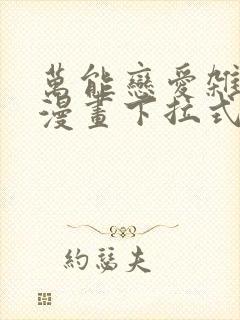 萬能戀愛雜
漫畫下拉式
約瑟夫